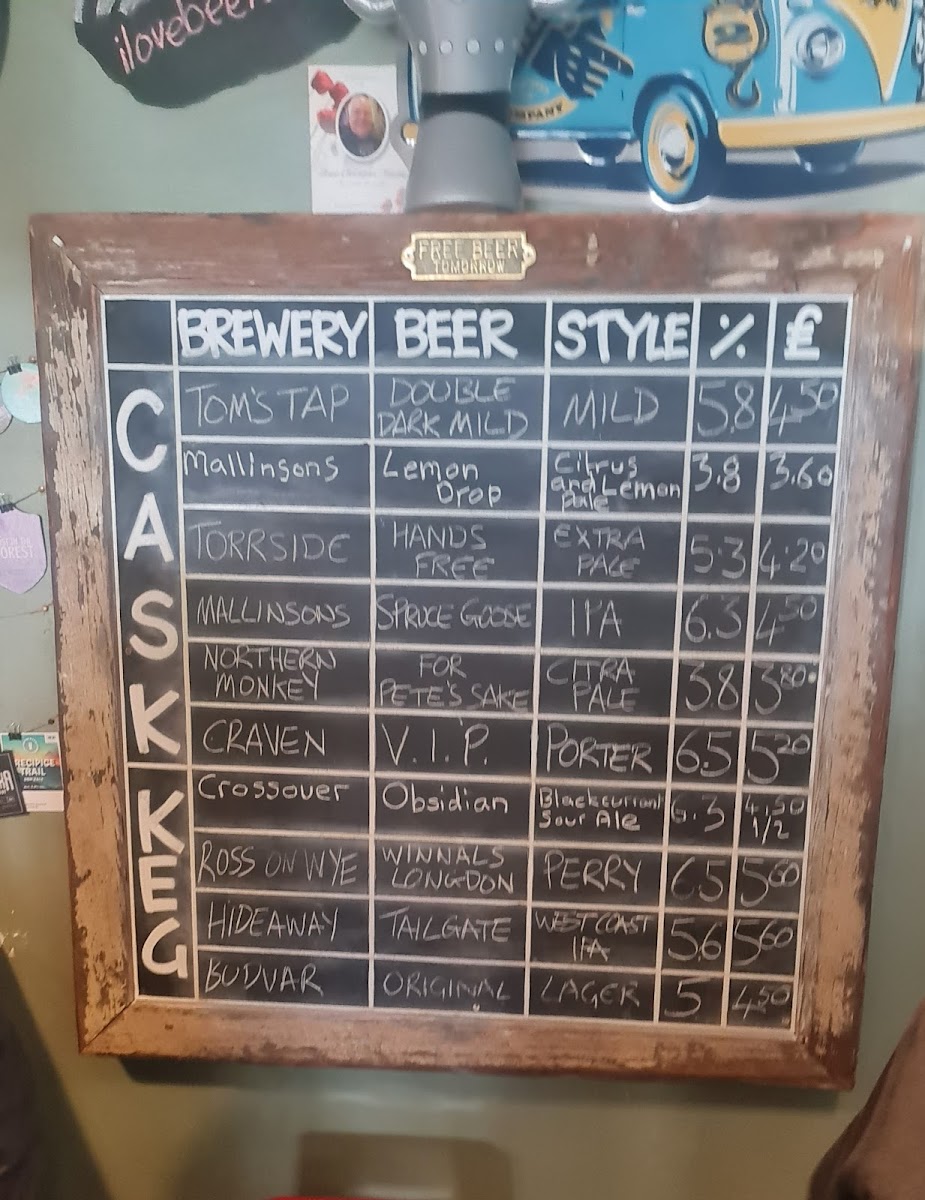 ilovebeer
COMPANY
FREE BEER
TOMORROW
BREWERY BEER STYLE % £
CASK
TOM'S TAP DOUBLE DARK MILD MILD 5.8 4.50
Mallinsons Lemon Drop Citrus and Lemon Pale 3.8 3.60
TORRSIDE HANDS FREE EXTRA PALE 5.3 4.20
MALLINSONS SPRUCE GOOSE IPA 6.3 4.50
NORTHERN MONKEY FOR PETE'S SAKE CITRA PALE 3.8 3.80
CRAVEN V.I.P. PORTER 6.5 5.20
KEG
Crossover Obsidian Blackcurrant Sour Ale 6.3 4.50 1/2
ROSS ON WYE WINNALS LONGDON PERRY 6.5 5.60
HIDEAWAY TAILGATE WEST COAST IPA 5.6 5.60
BUDVAR ORIGINAL LAGER 5 4.50
OREST
RECIPICE
TRAIL